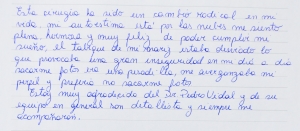 Esta cirugía ha sido un cambio radical en mi
vida, mi autoestima está por las nubes me siento
plena, hermosa y muy feliz de poder cumplir mi
sueño, el tabique de mi nariz estaba desviado lo
que provocaba una gran inseguridad en mi día a día
sacarme foto era una pesadilla, me avergonzaba mi
perfil y prefería no sacarme fotos.
Estoy muy agradecida del Dr Pedro Vidal y de su
equipo en general son detallista y siempre me
acompañaron.